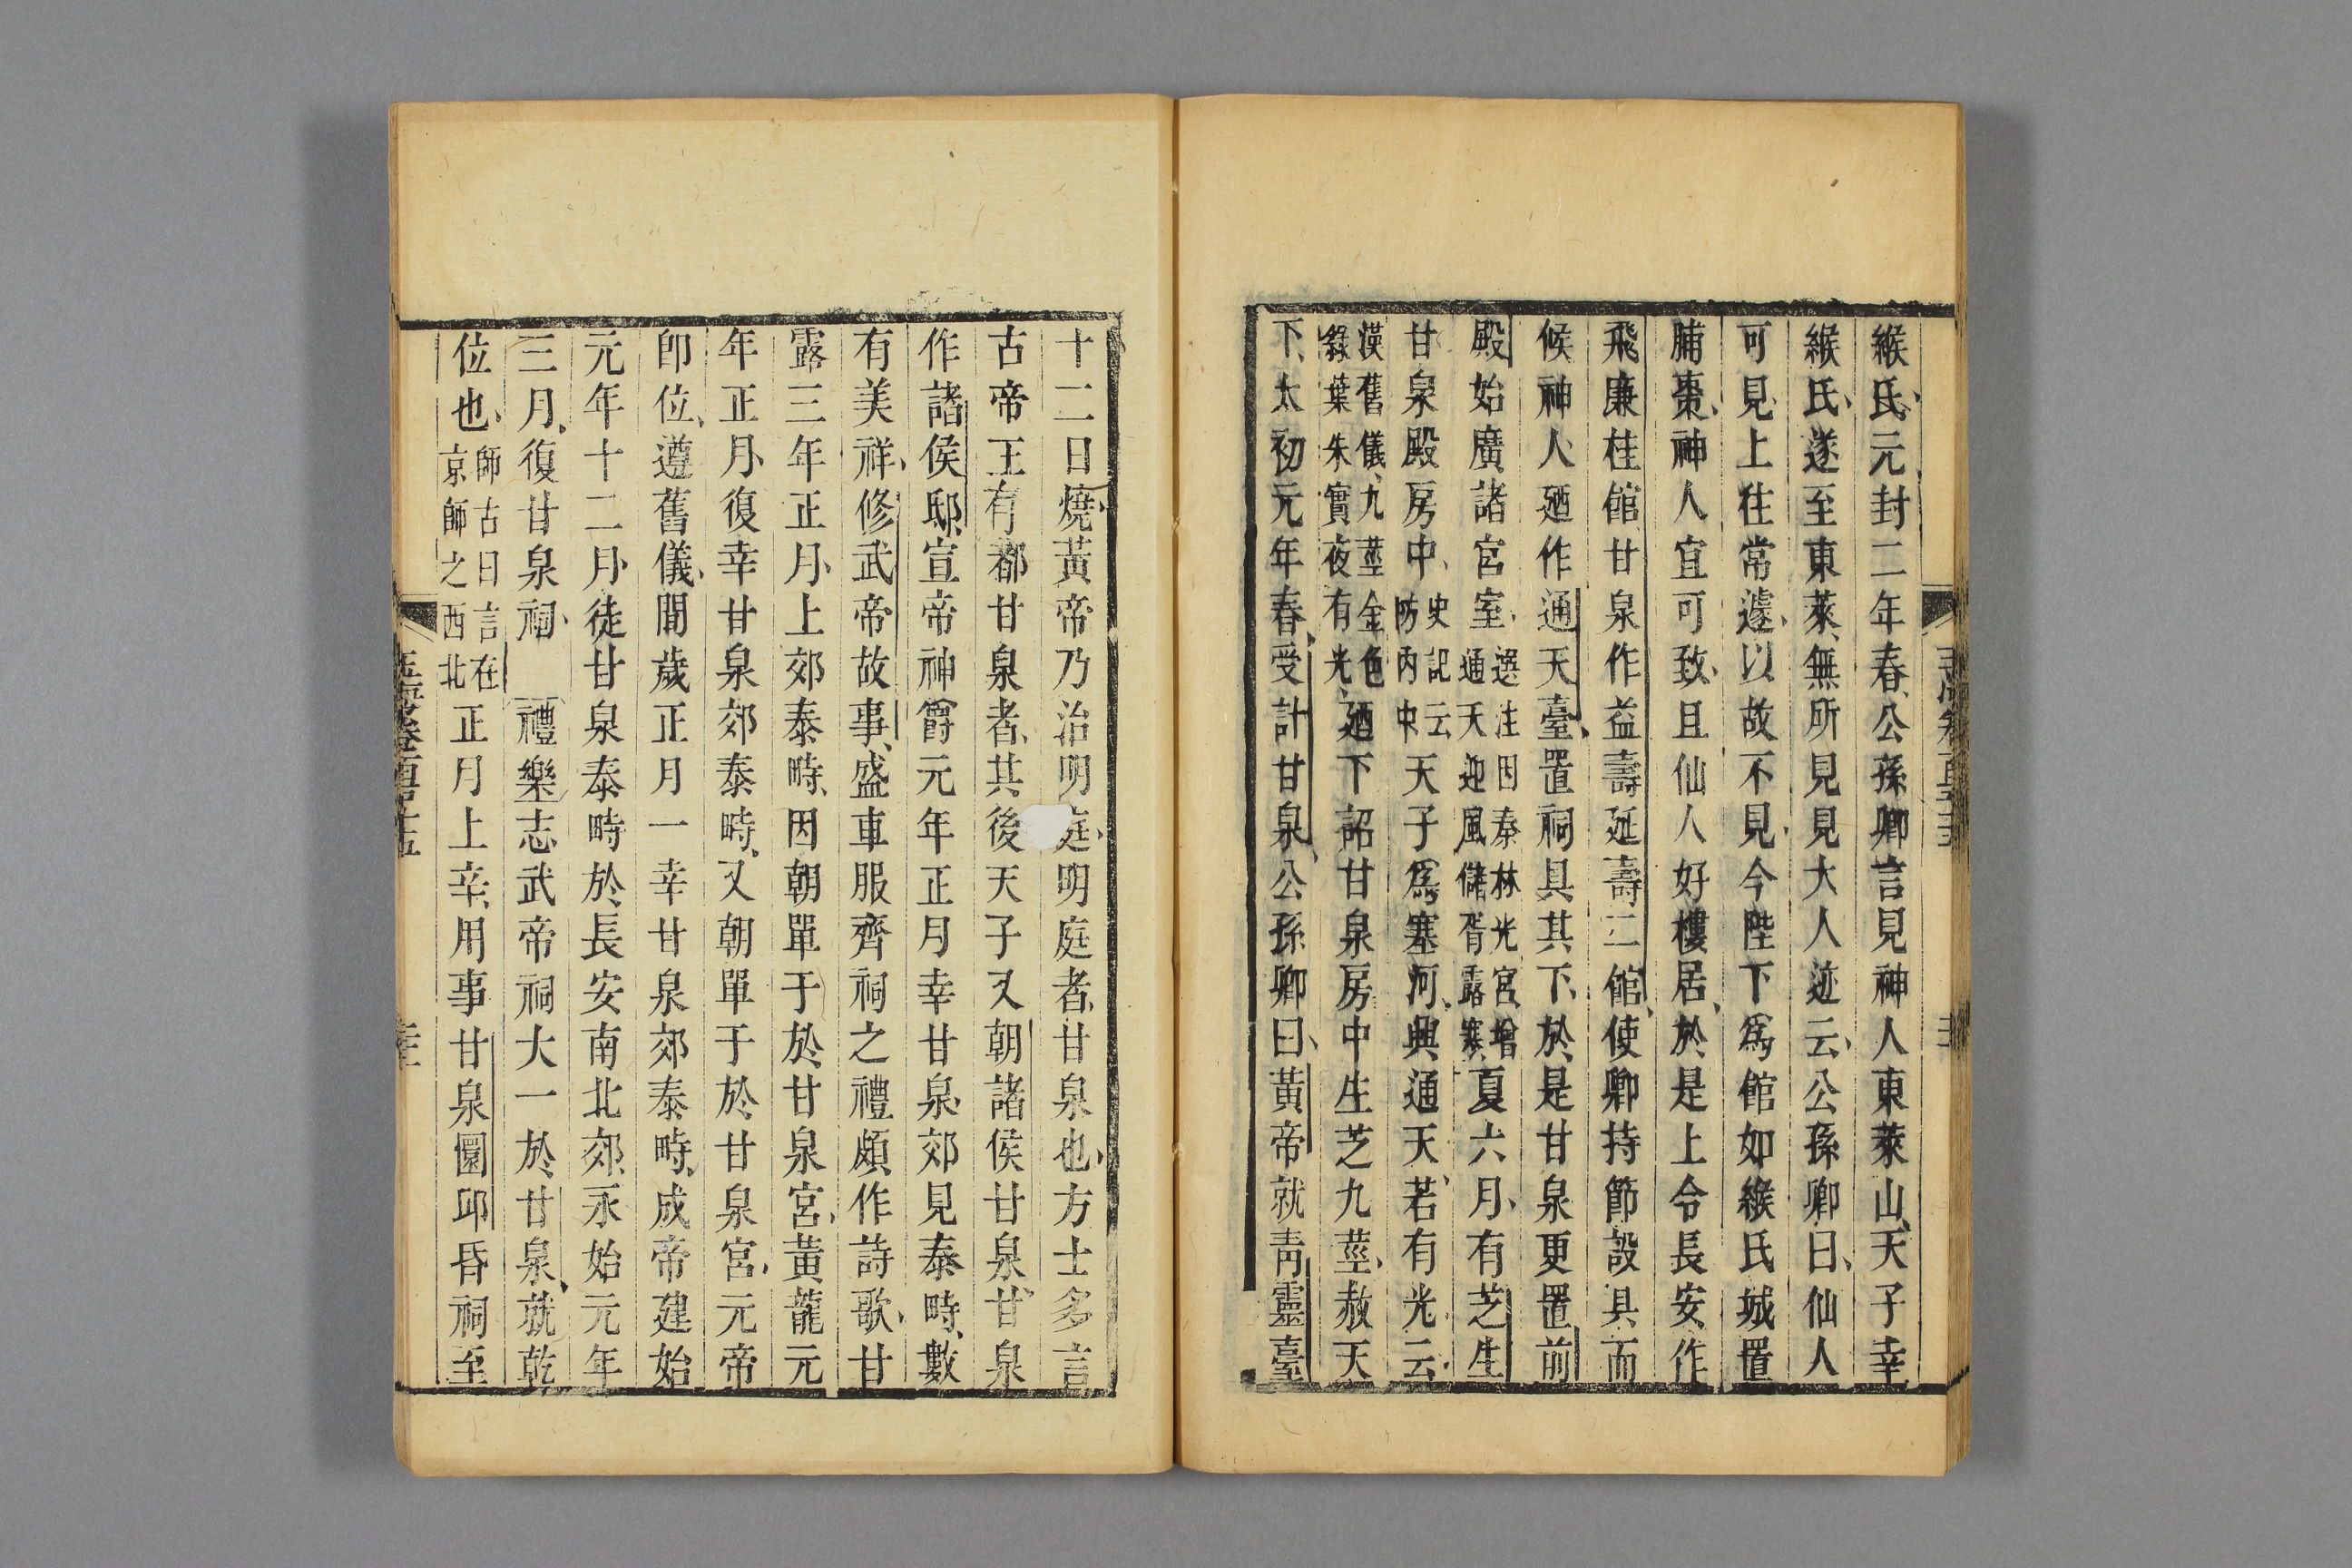 緱氏元封二年春公孫卿言見神人東萊山天子幸
緱氏遂至東萊無所見見大人迹云公孫卿曰仙人
可見上往常遽以故不見今陛下爲館如緱氏城置
脯棗神人宜可致且仙人好樓居於是上令長安作
飛廉桂館甘泉作益壽延壽二館使卿持節設具而
候神人廼作通天臺置祠具其下於是甘泉更置前
殿始廣諸宮室選注因秦林光宮增通天迎風儲胥露寒夏六月有芝生
甘泉殿房中史記云防內中天子爲塞河興通天若有光云
漢舊儀九莖金色綠葉朱實夜有光廼下詔甘泉房中生芝九莖赦天
下太初元年春受計甘泉公孫卿曰黃帝就靑靈臺
十二日燒黃帝乃治明庭明庭者甘泉也方士多言
古帝王有都甘泉者其後天子又朝諸侯甘泉甘泉
作諸侯邸宣帝神爵元年正月幸甘泉郊見泰畤數
有美祥修武帝故事盛車服齊祠之禮頗作詩歌甘
露三年正月上郊泰畤因朝單于於甘泉宮黃龍元
年正月復幸甘泉郊泰畤又朝單于於甘泉宮元帝
卽位遵舊儀間歲正月一幸甘泉郊泰畤成帝建始
元年十二月徒甘泉泰畤於長安南北郊永始元年
三月復甘泉祠 禮樂志武帝祠大一於甘泉就乾
位也師古曰言在京師之西北正月上辛用事甘泉圜邱昏祠至